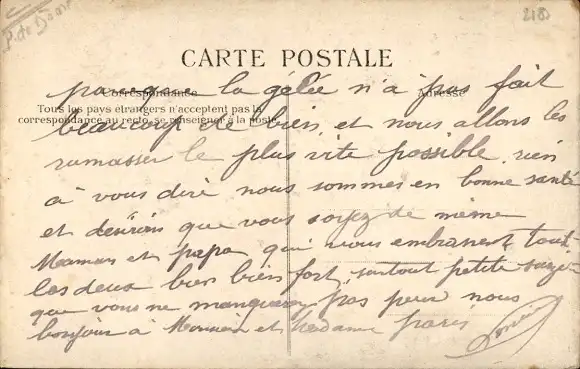 P. de Dôme
218
CARTE POSTALE
Correspondance
Adresse
Tous les pays étrangers n'acceptent pas la
correspondance au recto, se renseigner à la poste.
parceque la gélée n'a pas fait
beaucoup de bien, et nous allons les
ramasser le plus vite possible, rien
à vous dire nous sommes en bonne santé
et désirons que vous soyez de même
Maman et papa qui vous embrassent tout
les deux bien bien fort, surtout petite
que vous ne manquerez pas pour nous
bonjour à Monsieur et Madame paris